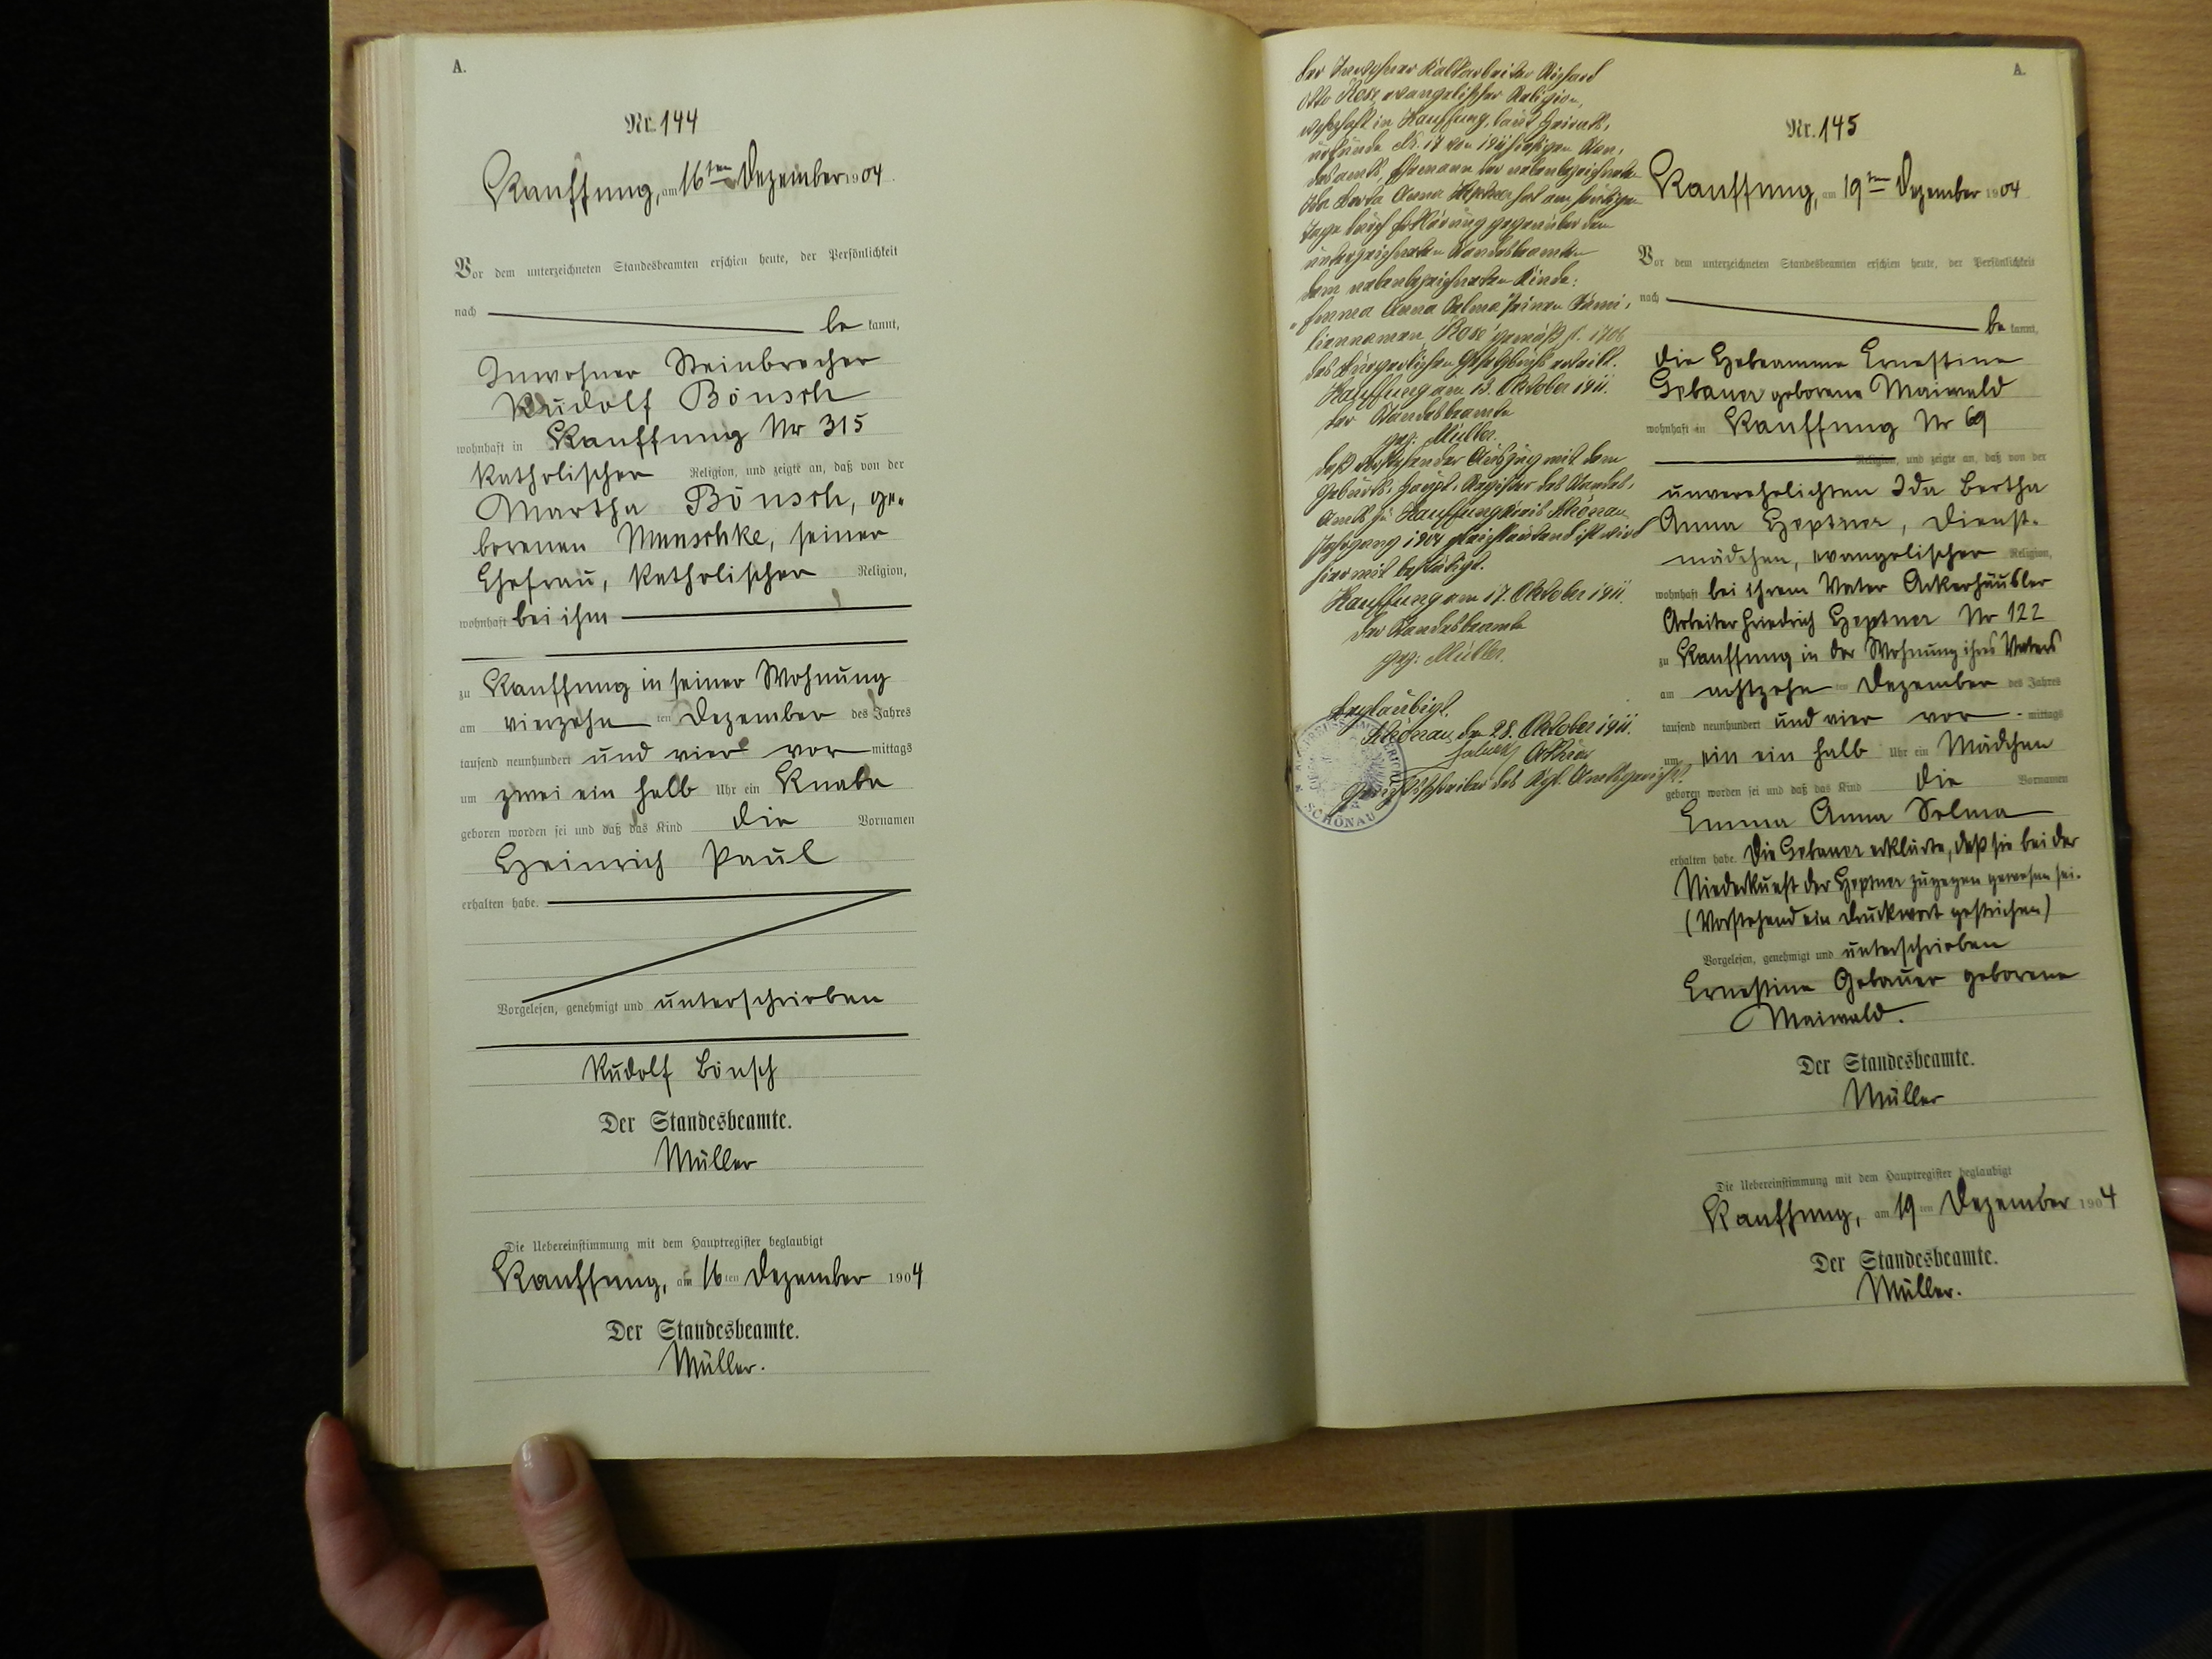 A.
Nr. 144
Kauffung, am 16ten Dezember 1904.
Vor dem unterzeichneten Standesbeamten erschien heute, der Persönlichkeit
nach be kannt,
Inwohner Steinbrecher
Rudolf Bönsch
wohnhaft in Kauffung Nr 315
katholischer Religion, und zeigte an, daß von der
Martha Bönsch, ge-
borenen Menschke, seiner
Ehefrau, katholischer Religion,
wohnhaft bei ihm
zu Kauffung in seiner Wohnung
am vierzehn ten Dezember des Jahres
tausend neunhundert und vier vor mittags
um zwei ein halb Uhr ein Knabe
geboren worden sei und daß das Kind die Vornamen
Heinrich Paul
erhalten habe.
Vorgelesen, genehmigt und unterschrieben
Rudolf Bönsch
Der Standesbeamte.
Müller
Die Uebereinstimmung mit dem Hauptregister beglaubigt
Kauffung, am 16ten Dezember 1904
Der Standesbeamte.
Müller.
Der Inwohner Kalkarbeiter Richard
Otto evangelischer Religion,
wohnhaft in Kauffung, laut Heirats-
urkunde Nr. 17 von 1911 hiesigen Stan-
desamts, Ehemann der nebenbezeichneten
Ida Berta Anna Heptner hat am heutigen
Tage durch Erklärung gegenüber dem
unterzeichneten Standesbeamten
dem nebenbezeichneten Kinde:
"Emma Anna Selma" seinen Fami-
liennamen gemäß §. 1706
des Bürgerlichen Gesetzbuchs erteilt.
Kauffung am 13. Oktober 1911.
Der Standesbeamte
gez: Müller.
Daß vorstehender Auszug mit dem
Geburts-Haupt-Register des Standes-
Amts zu Kauffung Kreis Schönau
Jahrgang 1904 gleichlautend ist wird
hiermit bestätigt.
Kauffung am 17. Oktober 1911.
Der Standesbeamte
gez: Müller.
Beglaubigt.
Schönau, den 28. Oktober 1911.
Gerichtsschreiber des Kgl. Amtsgerichts.
SCHÖNAU
A.
Nr. 145
Kauffung, am 19ten Dezember 1904
Vor dem unterzeichneten Standesbeamten erschien heute, der Persönlichkeit
nach be kannt,
die Hebeamme Ernestine
Gebauer geborene Maiwald
wohnhaft in Kauffung Nr 69
Religion, und zeigte an, daß von der
unverehelichten Ida Bertha
Anna Heptner, Dienst-
mädchen, evangelischer Religion,
wohnhaft bei ihrem Vater Ackerhäusler
Arbeiter Friedrich Heptner Nr 122
zu Kauffung in der Wohnung ihres Vaters
am achtzehn ten Dezember des Jahres
tausend neunhundert und vier vor mittags
um ein ein halb Uhr ein Mädchen
geboren worden sei und daß das Kind die Vornamen
Emma Anna Selma
erhalten habe. Die Gebauer erklärte, daß sie bei der
Niederkunft der Heptner zugegen gewesen sei.
(Vorstehend ein Druckwort gestrichen)
Vorgelesen, genehmigt und unterschrieben
Ernestine Gebauer geborene
Maiwald.
Der Standesbeamte.
Müller
Die Uebereinstimmung mit dem Hauptregister beglaubigt
Kauffung, am 19 ten Dezember 1904
Der Standesbeamte.
Müller.